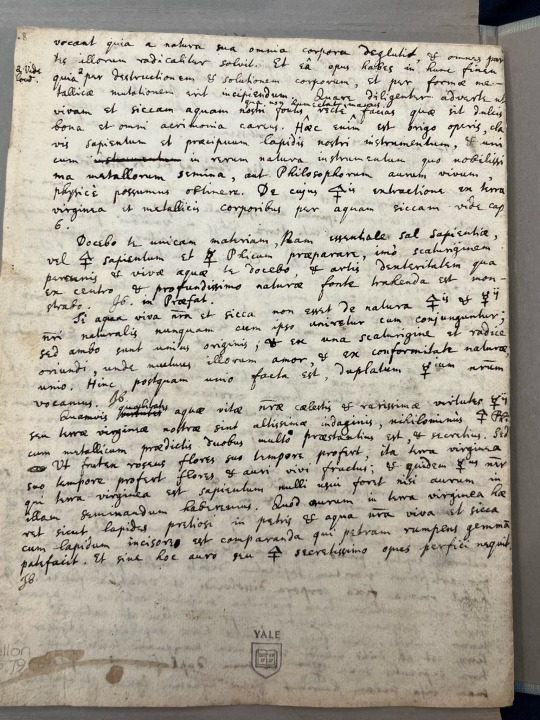 8
vocant quia a natura sua omnia corpora deglutit, & omnes par
tes illorum radicaliter solvit. Et eâ opus habes in hunc finem
& Vide
quia per destructionem & solutionem corporum, et per formæ me-
tallicæ mutationem erit incipiendum. Quare diligenter adverte ut
vivam et siccam aquam nostri fontis recte facias quæ sit dulcis
bona et omni acrimonia careus. Hæc enim est origo operis, cla
vis sapientum et præcipuum lapidis nostri instrumentum, & uni
cum in rerum natura instrumentum quo nobilissi
ma metallorum semina, aut Philosophorum aurum vivum,
physicè possumus obtinere. De cujus 🜍ii extractione ex terra
virginea et metallicis corporibus per aquam siccam vide cap
6.
Docebo te unicam materiam, essentiale sal sapientiæ,
vel 🜍 sapientum et ☿ Phicum præparare, imò scaturiginem
perennis & vivæ aquæ te docebo, & artis dexteritatem qua
ex centro & profundissimo naturæ fonte trahenda est mon-
strabo. Ib. in Præfat.
Si aqua viva nr̄a et sicca non esset de natura 🜍ii & ☿ii
nr̄i naturalis nunquam cum ipso uniretur cum conjunguntur;
sed ambo sunt unius originis; & ex una scaturigine et radice
oriundi, unde mutuus illorum amor, & ex conformitate naturæ,
unio. Hinc postquam unio facta est, duplatum ☿ium nr̄um
vocamus. Ib.
Quamvis qualitates aquæ vitæ nr̄æ cælestis & rarissimæ virtutes ☿ii
seu terræ virgineæ nostræ sint altissimæ indaginis, nihilominus 🜍 Ph
cum metallicum prædictis duobus multò præstantius est, & secretius. Sed
Ut frutex roseus flores suo tempore profert, ita terra virginea
suo tempore profert flores & auri vivi fructus; & quidem ☿us nr̄
qui terra virginea est sapientum nulli usui foret nisi aurum in
illam seminandum haberemus. Quod aurum in terra virginea hæ
ret sicut lapides pretiosi in petris & aqua nr̄a viva et sicca
cum lapidum incisore est comparanda qui petram rumpens gemmā
patefacit. Et sine hoc auro seu 🜍 secretissimo opus perfici nequit.
Ib.
YALE